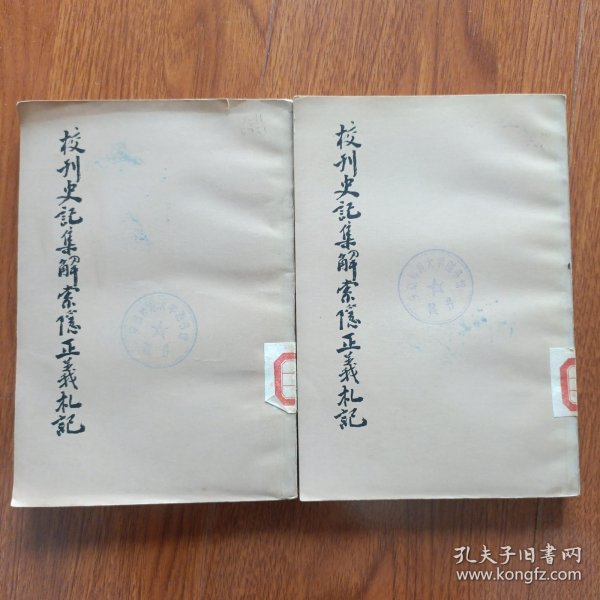 校刊史記集解索隱正義札記
校刊史記集解索隱正義札記
孔夫子旧书网
www.kongfz.com